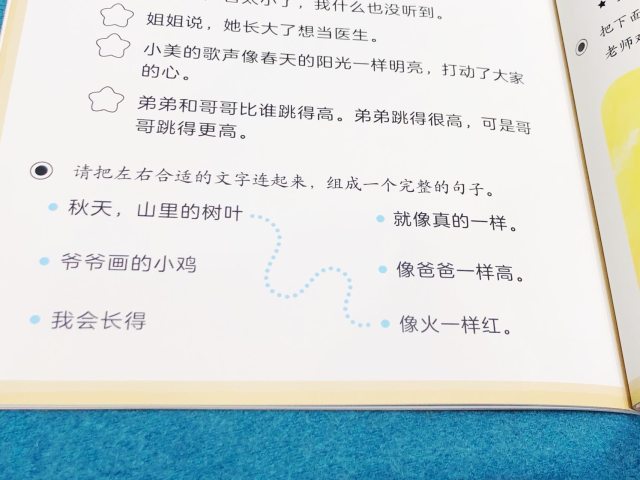 太小了，我什么也没听到。
姐姐说，她长大了想当医生。
小美的歌声像春天的阳光一样明亮，打动了大家
的心。
弟弟和哥哥比谁跳得高。弟弟跳得很高，可是哥
哥跳得更高。
请把左右合适的文字连起来，组成一个完整的句子。
秋天，山里的树叶
就像真的一样。
爷爷画的小鸡
像爸爸一样高。
我会长得
像火一样红。
把下面
老师